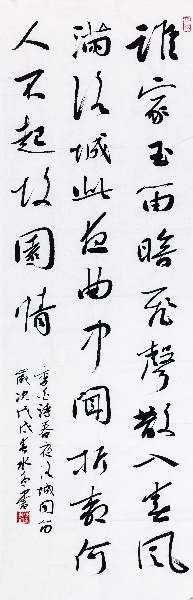 誰家玉笛暗飛聲散入春風
滿洛城此夜曲中聞折柳何
人不起故園情
李白詩春夜洛城聞笛
歲次戊戌書